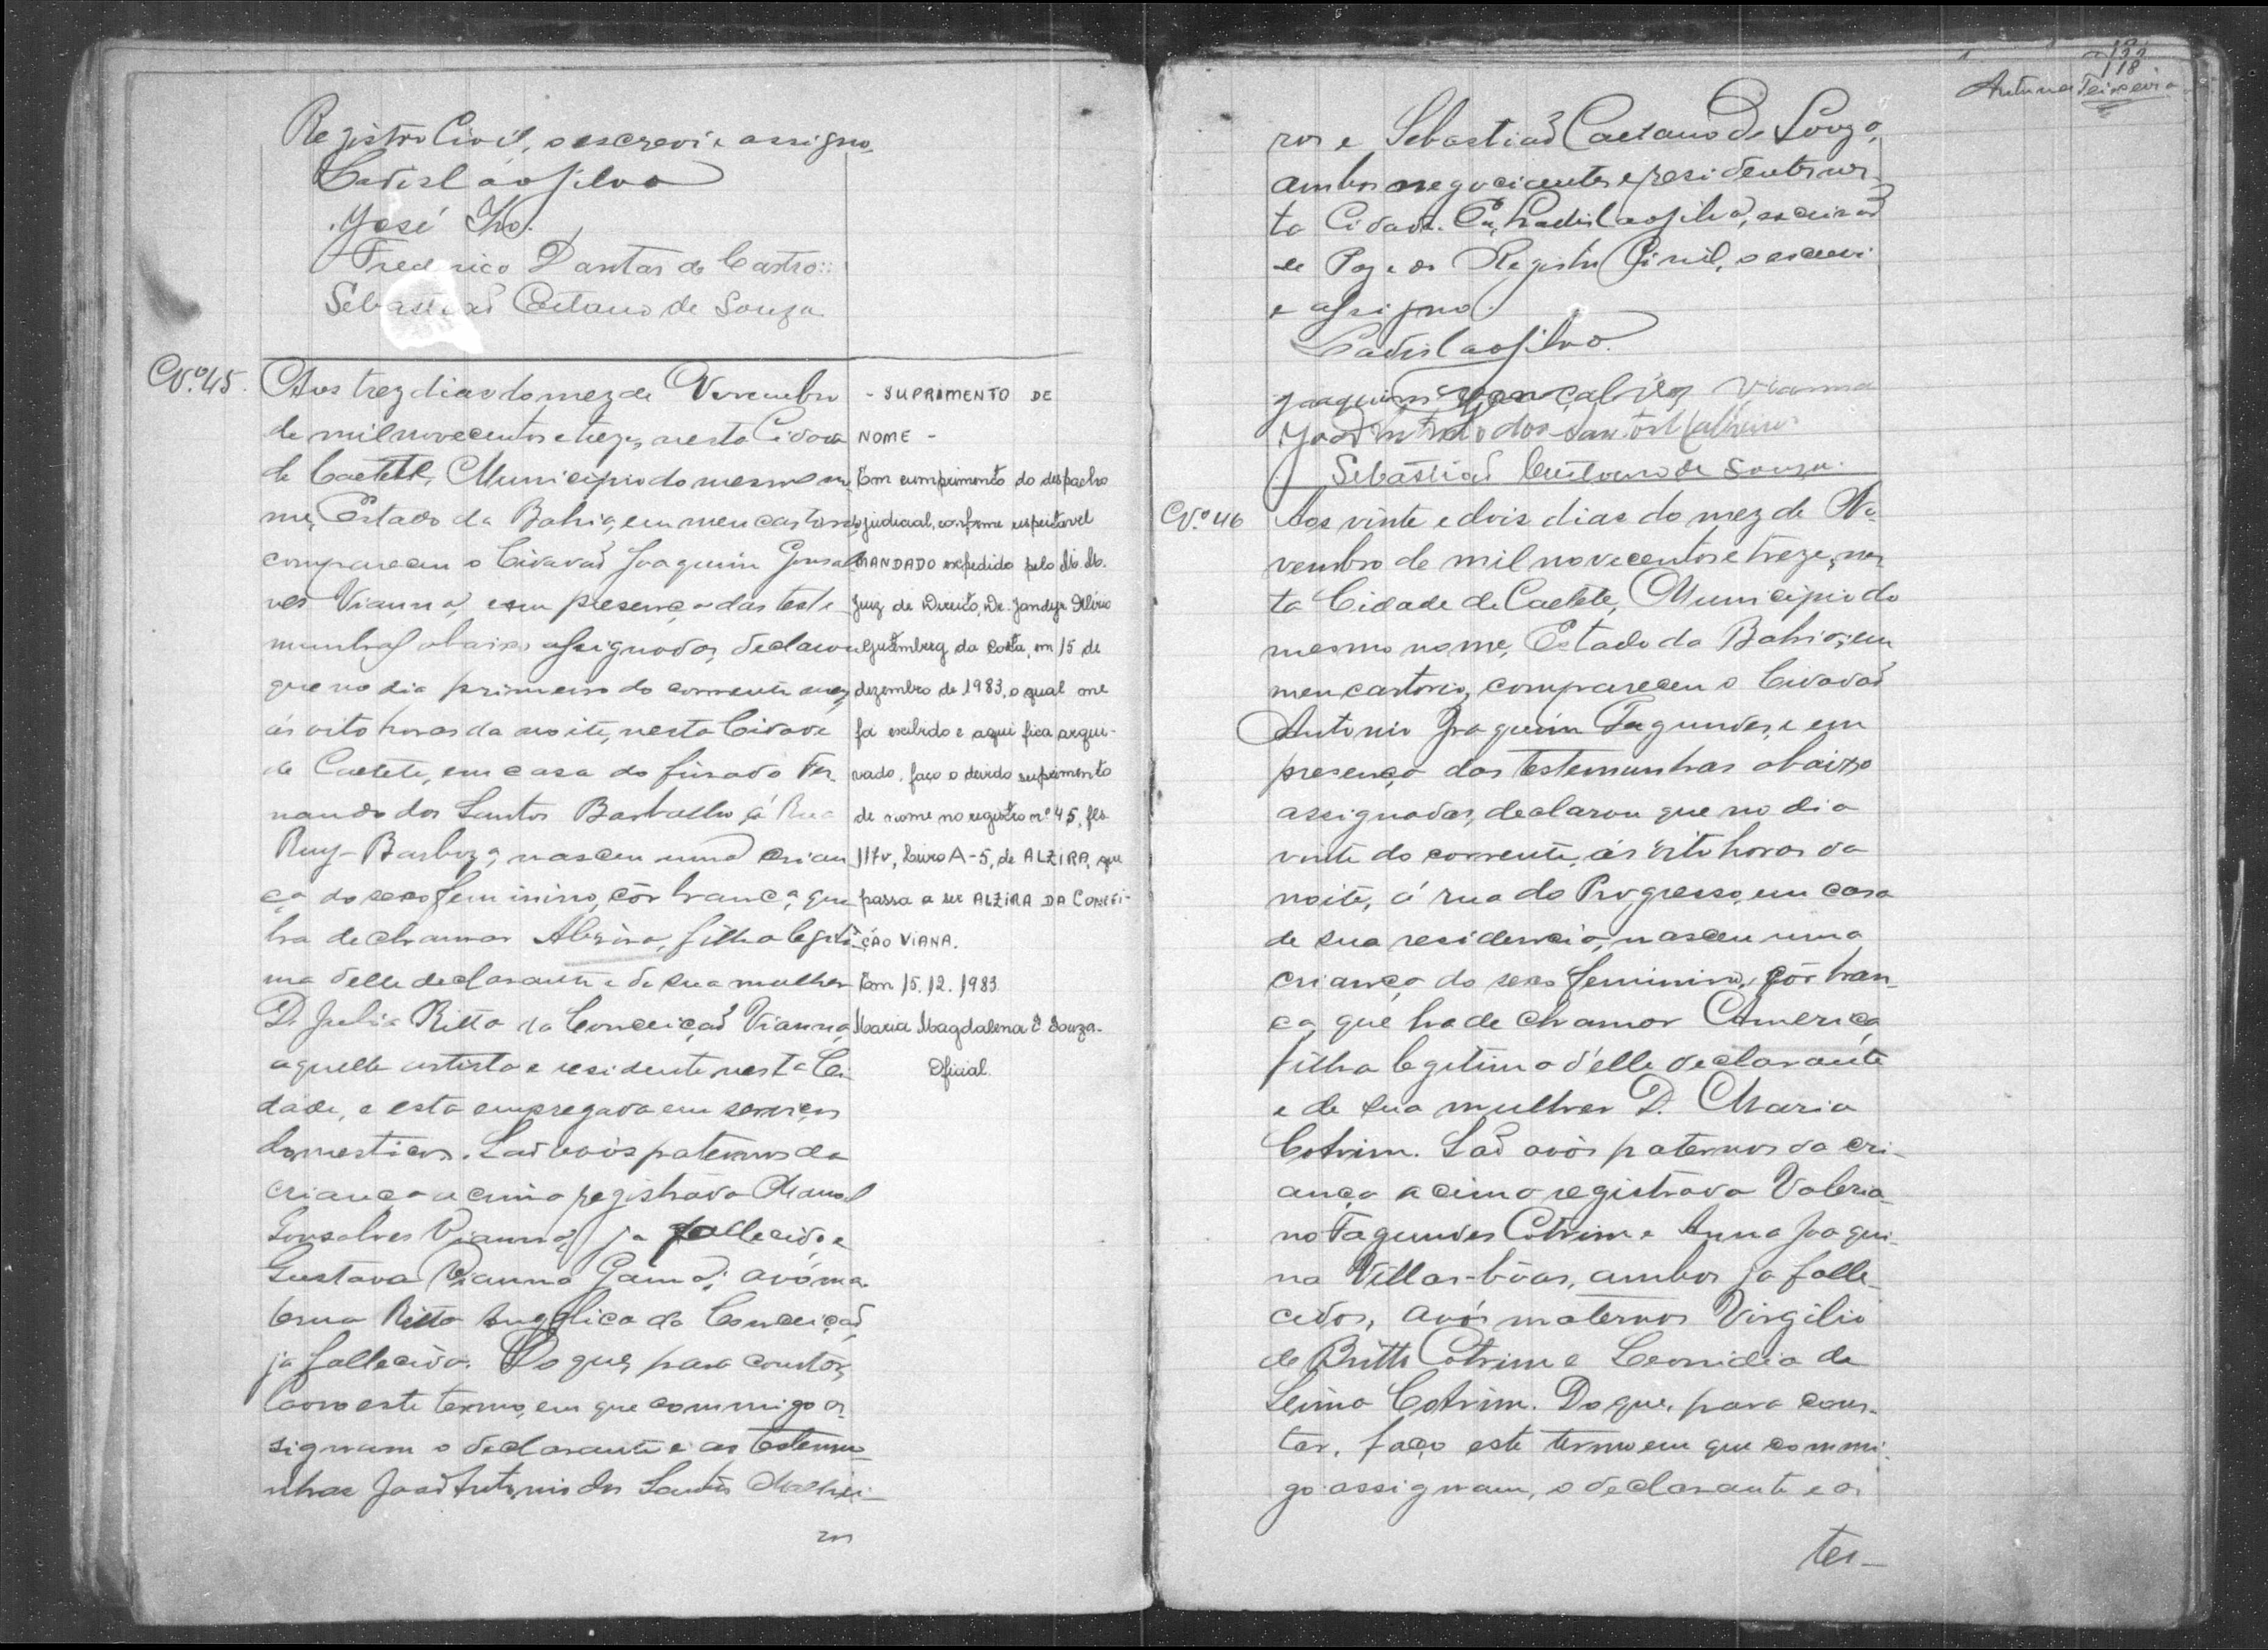 Registro Civil, o escrevi e assigno.
Ladislao Silva
José Ivo.
Frederico Dantas de Castro
Sebastião Caetano de Souza
Nº 45.
Aos trez dias do mez de Novembro
de mil novecentos e treze, nesta Cidade
de Caeteté, Municipio do mesmo no
me, Estado da Bahia, em meu cartorio
compareceu o Cidadão Joaquim Gonsal
ves Vianna, e em presença das teste
munhas abaixo assignadas, declarou
que no dia primeiro do corrente mez
ás oito horas da noite, nesta Cidade
de Caeteté, em casa do finado Fer
nando dos Santos Barbalho, á Rua
Ruy-Barboza, nasceu uma crian
ça do sexo feminino, côr branca, que
ha de chamar Alzira, filha legiti
ma delle declarante e de sua mulher
D. Julia Ritta da Conceição Vianna,
aquelle artista e residente nesta Ci
dade, e esta empregada em serviços
domesticos. São avós paternos da
criança acima registrada Manoel
Gonsalves Vianna, ja fallecido e
Gustava Vianna Gama; avó ma
terna Ritta Angelica da Conceição
ja fallecida. Do que, para constar,
lavro este termo, em que commigo as
signam o declarante e as testemu
nhas João Antonio dos Santos Malhei-
ros
- SUPRIMENTO DE
NOME -
Em cumprimento do despacho
judicial, conforme respeitavel
MANDADO expedido pelo M.M.
Juiz de Direito, Dr. Jandyr Alirio
Guttmberg da Costa, em 15 de
dezembro de 1983, o qual me
foi exibido e aqui fica arqui-
vado, faço o devido suprimento
de nome no registro nº 45, fls
117v, Livro A-5, de ALZIRA, que
passa a ser ALZIRA DA CONCEI-
ÇÃO VIANA.
Em 15.12.1983
Maria Magdalena C Souza-
Oficial.
122
118
Antunes Teixeira
ros e Sebastião Caetano de Souza,
ambos negociantes e residentes nes
ta Cidade. Eu, Ladislao Silva, escrivão
de Paz e do Registro Civil, o escrevi
e assigno.
Ladislao Silva.
Joaquim Gonçalves Vianna
João Antonio dos Santos Malheiros
Sebastião Caetano de Souza.
Nº 46
Aos vinte e dois dias do mez de No
vembro de mil novecentos e treze, nes
ta Cidade de Caeteté, Municipio do
mesmo nome, Estado da Bahia, em
meu cartorio, compareceu o Cidadão
Antonio Joaquim Fagundes, e em
presença das testemunhas abaixo
assignadas, declarou que no dia
vinte do corrente, ás oito horas da
noite, á rua do Progresso, em casa
de sua residencia, nasceu uma
criança do sexo feminino, côr bran
ca, que ha de chamar America,
filha legitima d'elle declarante
e de sua mulher D. Maria
Cotrim. São avós paternos da cri-
ança acima registrada Valeria-
no Fagundes Cotrim e Anna Joaqui-
na Villas-bôas, ambos ja falle-
cidos, avós maternos Virgilio
de Britto Cotrim e Leonidia de
Leima Cotrim. Do que, para cons-
tar, faço este termo em que commi-
go assignam, o declarante e as
tes-